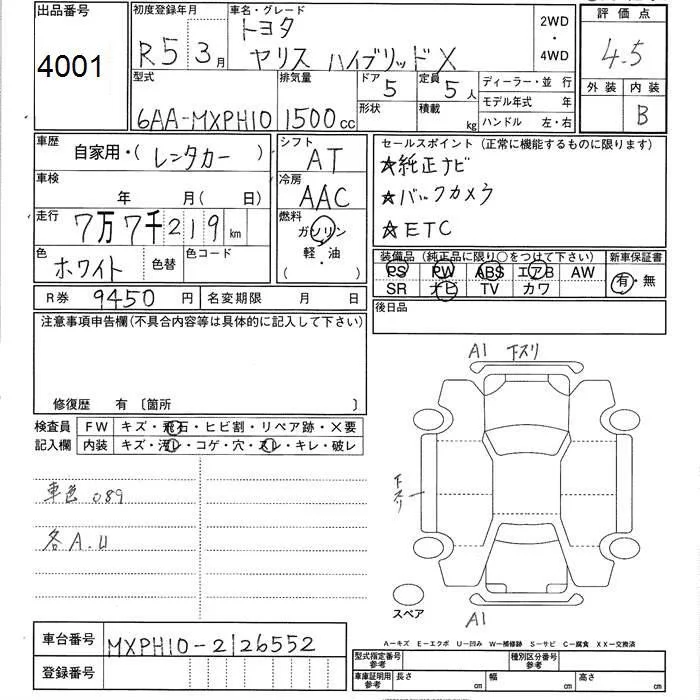 出品番号 4001
初度登録年月 R5 3月
車名・グレード トヨタ
ヤリス ハイブリッドX
2WD・4WD
評価点 4.5
外装 内装 B
型式 6AA-MXPH10
排気量 1500cc
ドア 5 定員 5人
形状 積載 kg
ディーラー・並 行
モデル年式 年
ハンドル 左・右
車歴 自家用・(レンタカー)
車検 年 月(日)
走行 7万7千219km
色 ホワイト 色替 色コード
シフト AT
冷房 AAC
燃料 ガソリン
軽・油
( )
セールスポイント (正常に機能するものに限ります)
☆純正ナビ
☆バックカメラ
☆ETC
装備品 (純正品に限り○をつけて下さい) 新車保証書
PS PW ABS エアB AW
SR ナビ TV カワ
有・無
R券 9450円 名変期限 月 日
後日品
注意事項申告欄(不具合内容等は具体的に記入して下さい)
修復歴 有 〔箇所 〕
検査員 FW キズ・飛石・ヒビ割・リペア跡・×要
記入欄 内装 キズ・汚レ・コゲ・穴・スレ・キレ・破レ
車色 089
各A.U
A1 下スリ
下スリ
スペア
A1
A－キズ E－エクボ U－凹み W－補修跡 S－サビ C－腐食 XX－交換済
車台番号 MXPH10-2126552
登録番号
型式指定番号 参考 種別区分番号 参考
車庫証明用 参考 長さ cm 幅 cm 高さ cm